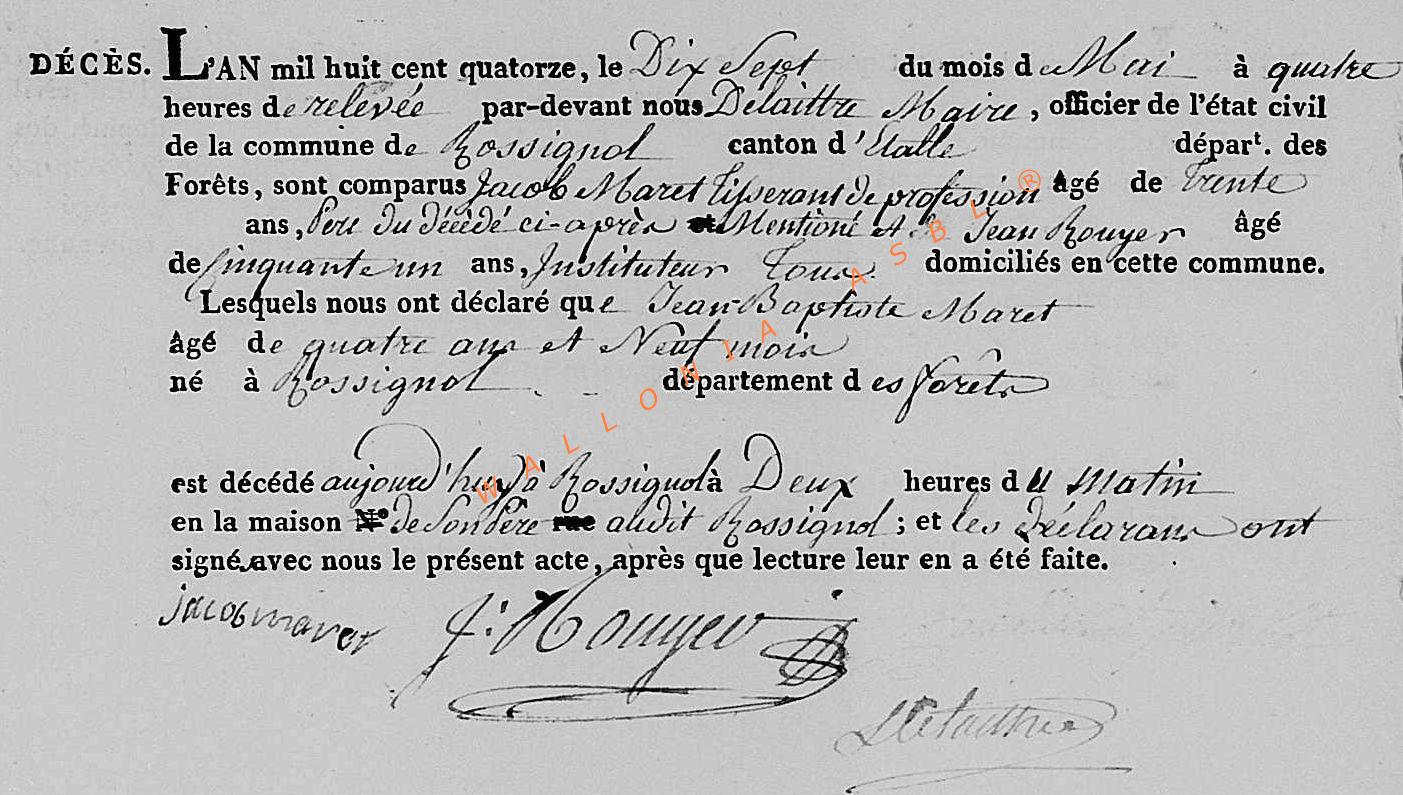 DÉCÈS. L'AN mil huit cent quatorze, le Dix Sept du mois de Mai à quatre
heures de relevée par-devant nous Delaittre Maire, officier de l'état civil
de la commune de Rossignol canton d'Etalle départ. des
Forêts, sont comparus Jacob Maret Tisserant de profession âgé de Trente
ans, Pere du décédé ci-après Mentioné et Jean Rouyer âgé
de Cinquante un ans, Instituteur Tous domiciliés en cette commune.
Lesquels nous ont déclaré que Jean-Baptiste Maret
âgé de quatre ans et Neuf mois
né à Rossignol département des forêts
est décédé aujourd'hui à Rossignol à Deux heures du Matin
en la maison N° de Son Père rue audit Rossignol; et les déclarans ont
signé avec nous le présent acte, après que lecture leur en a été faite.
jacob maret J: Rouyer
Delaittre
WALLONIA ASBL ®